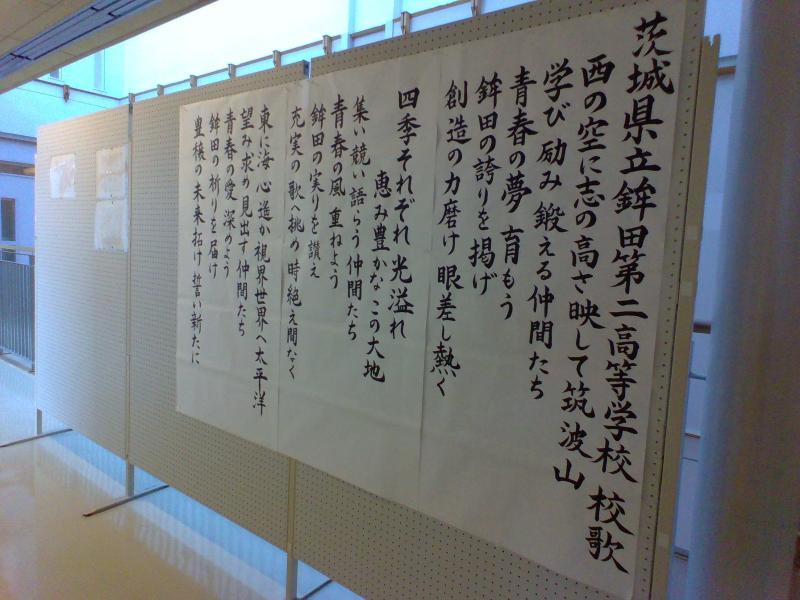 茨城県立鉾田第二高等学校 校歌
西の空に志の高さ映して筑波山
学び励み鍛える仲間たち
青春の夢 育もう
鉾田の誇りを掲げ
創造の力磨け 眼差し熱く
四季それぞれ 光溢れ
恵み豊かなこの大地
集い競い語らう仲間たち
青春の風 重ねよう
鉾田の実りを讃え
充実の歌へ挑め 時絶え間なく
東に海 心遥か 視界世界へ太平洋
望み求め見出す仲間たち
青春の愛 深めよう
鉾田の祈りを届け
豊穣の未来拓け 誓い新たに